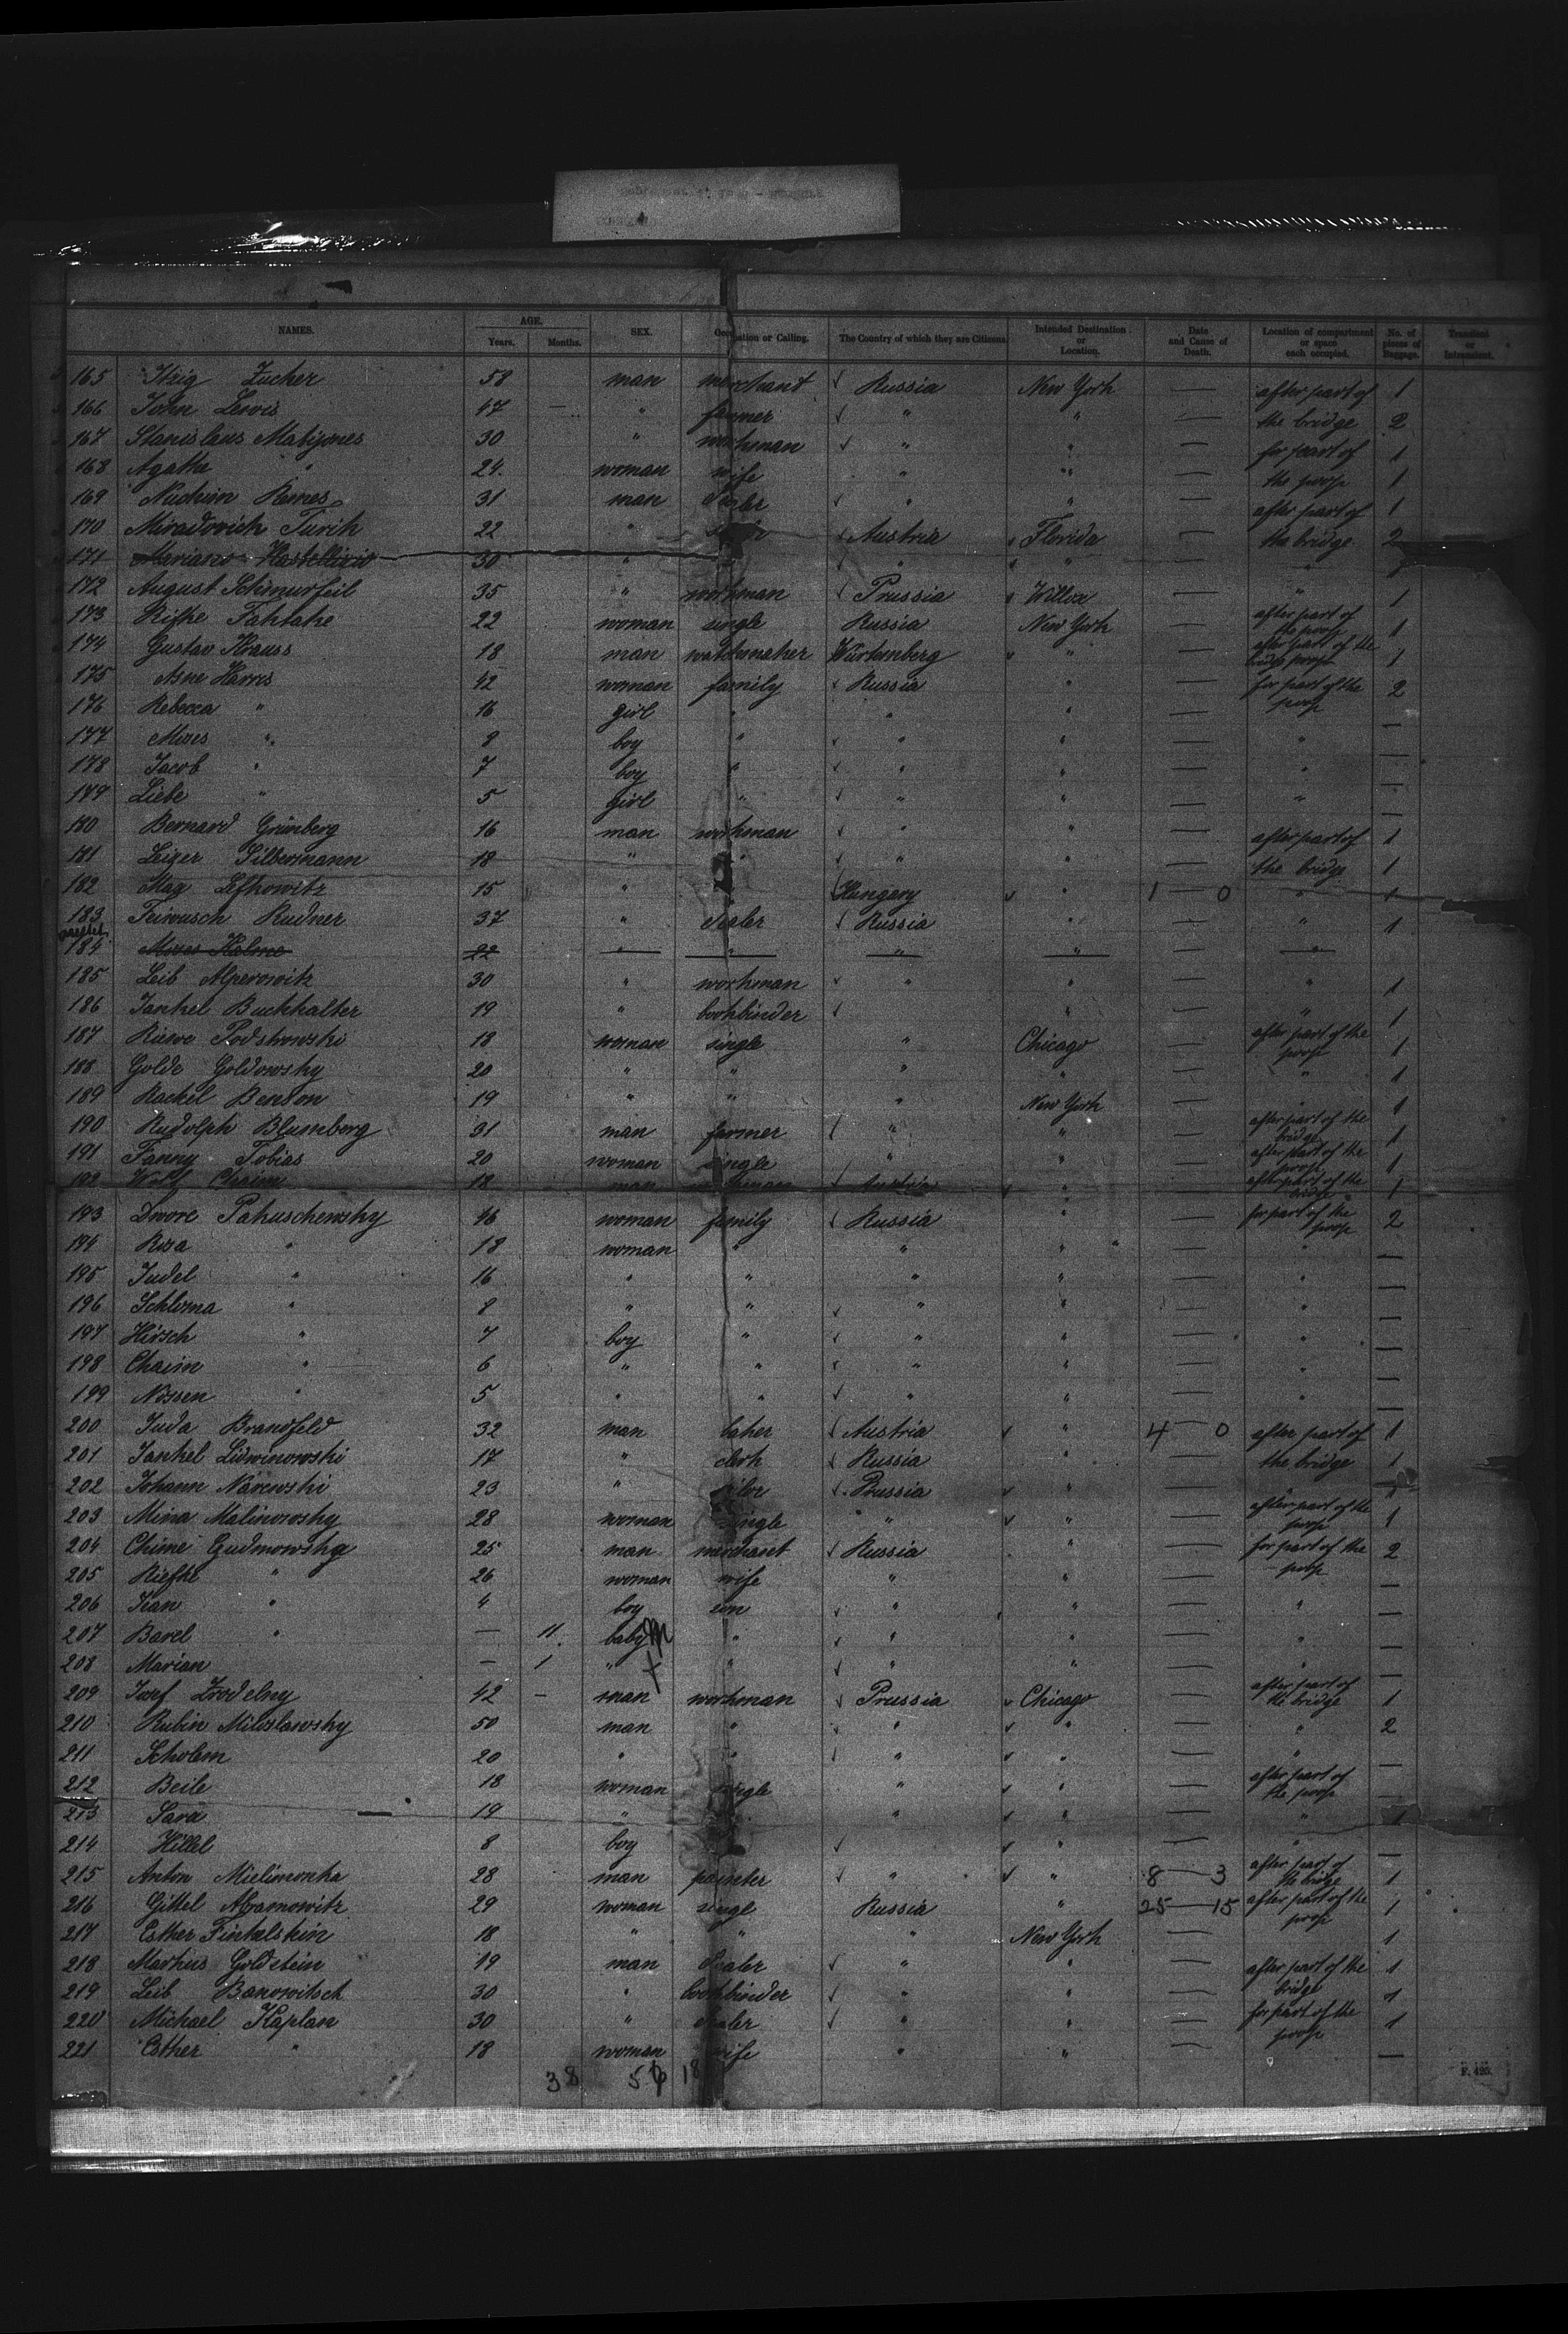 NAMES. AGE. Years. Months. SEX. Occupation or Calling. The Country of which they are Citizens. Intended Destination or Location. Date and Cause of Death. Location of compartment or space each occupied. No. of pieces of Baggage. Transient or Intransient.
165 Itzig Zucher 58 man merchant √ Russia New York — after part of 1
166 John Lewis 47 — " farmer √ " " — the bridge 2
167 Stanislaus Matizones 30 " workman √ " " — for part of 1
168 Agatha " 24. woman wife " " — the poop 1
169 Nuchim Remes 31 man dealer √ " " — after part of 1
170 Miradovich Turih 22 " √ Austria √ Florida — the bridge 2
171 Mariano 30 " " " — "
172 August Schmurfeil 35 " workman √ Prussia √ Willox — " 1
173 Rifke Tahtahe 22 woman single Russia New York — after part of the poop 1
174 Gustav Krauss 18 man watchmaker Würtemberg " " — after part of the bridge poop 1
175 Asne Harris 42 woman family √ Russia " — for part of the poop 2
176 Rebecca " 16 girl " " " — —
177 Moses " 8 boy " √ " " — " —
178 Jacob " 7 boy " √ " " — " —
179 Liebe " 5 girl " √ " " — " —
180 Bernard Grünberg 16 man workman √ " " — after part of 1
181 Leizer Silbermann 18 " " √ " " — the bridge 1
182 Max Lefkowitz 15 " " √ Hungary √ " 1 — 0 " 1
183 Feiwusch Rudner 37 " dealer √ Russia " — " 1
184 Moses Kalme 22 " " " " "
185 Leib Alperowitz 30 " workman √ " " — " 1
186 Jankel Buchhalter 19 " bookbinder √ " — " 1
187 Riewe Podshowski 18 woman single " Chicago — after part of the poop 1
188 Golde Goldowsky 20 " " " " — " 1
189 Rachel Benson 19 " " " New York — " 1
190 Rudolph Blumberg 31 man farmer √ " " — after part of the bridge 1
191 Fanny Tobias 20 woman single " " — after part of the poop 1
192 Wolf Chaim 18 man workman √ Austria √ " — after part of the bridge 1
193 Dwore Pahuschewsky 46 woman family √ Russia " — for part of the poop 2
194 Rosa " 18 woman " " " — " —
195 Judel " 16 " " " " — " —
196 Schloma " 8 " " √ " " — " —
197 Hirsch " 7 boy " √ " " — " —
198 Chaim " 6 " " √ " " — " —
199 Nossen " 5 " " √ " " — " —
200 Juda Brandfeld 32 man baker √ Austria √ " 4 — 0 after part of 1
201 Jankel Lidwinowski 17 " clerk √ Russia " — the bridge 1
202 Johann Narewski 23 " √ Prussia √ " —
203 Mina Malinowsky 28 woman single " √ " — after part of the poop 1
204 Chime Gudmowsky 25 man merchant √ Russia " — for part of the poop 2
205 Riefke " 26 woman wife " " — —
206 Ivan " 4 boy son √ " " — " —
207 Barel " — 11. baby m " √ " " — " —
208 Marian — 1 " + " √ " " — " —
209 Josef Zrodelny 42 — man workman √ Prussia √ Chicago — after part of the bridge 1
210 Rubin Miloslawsky 50 man " √ " √ " — " 2
211 Scholem 20 " " √ " √ " — " —
212 Beile 18 woman single " √ " — after part of the poop —
213 Sara 19 " " √ " — " 1
214 Hillel 8 boy √ √ " — " —
215 Anton Mielimonka 28 man painter √ " √ " 8 — 3 after part of the bridge 1
216 Gittel Abramowitz 29 woman singl Russia " 25 — 15 after part of the poop 1
217 Esther Finkelstein 18 " " " New York — 1
218 Markus Goldstein 19 man dealer √ " " — after part of the bridge 1
219 Leib Banowitsch 30 " bookbinder √ " " — 1
220 Michael Kaplan 30 " dealer √ " " — for part of the poop 1
221 Esther " 18 woman wife " " — —
38
F. 420.